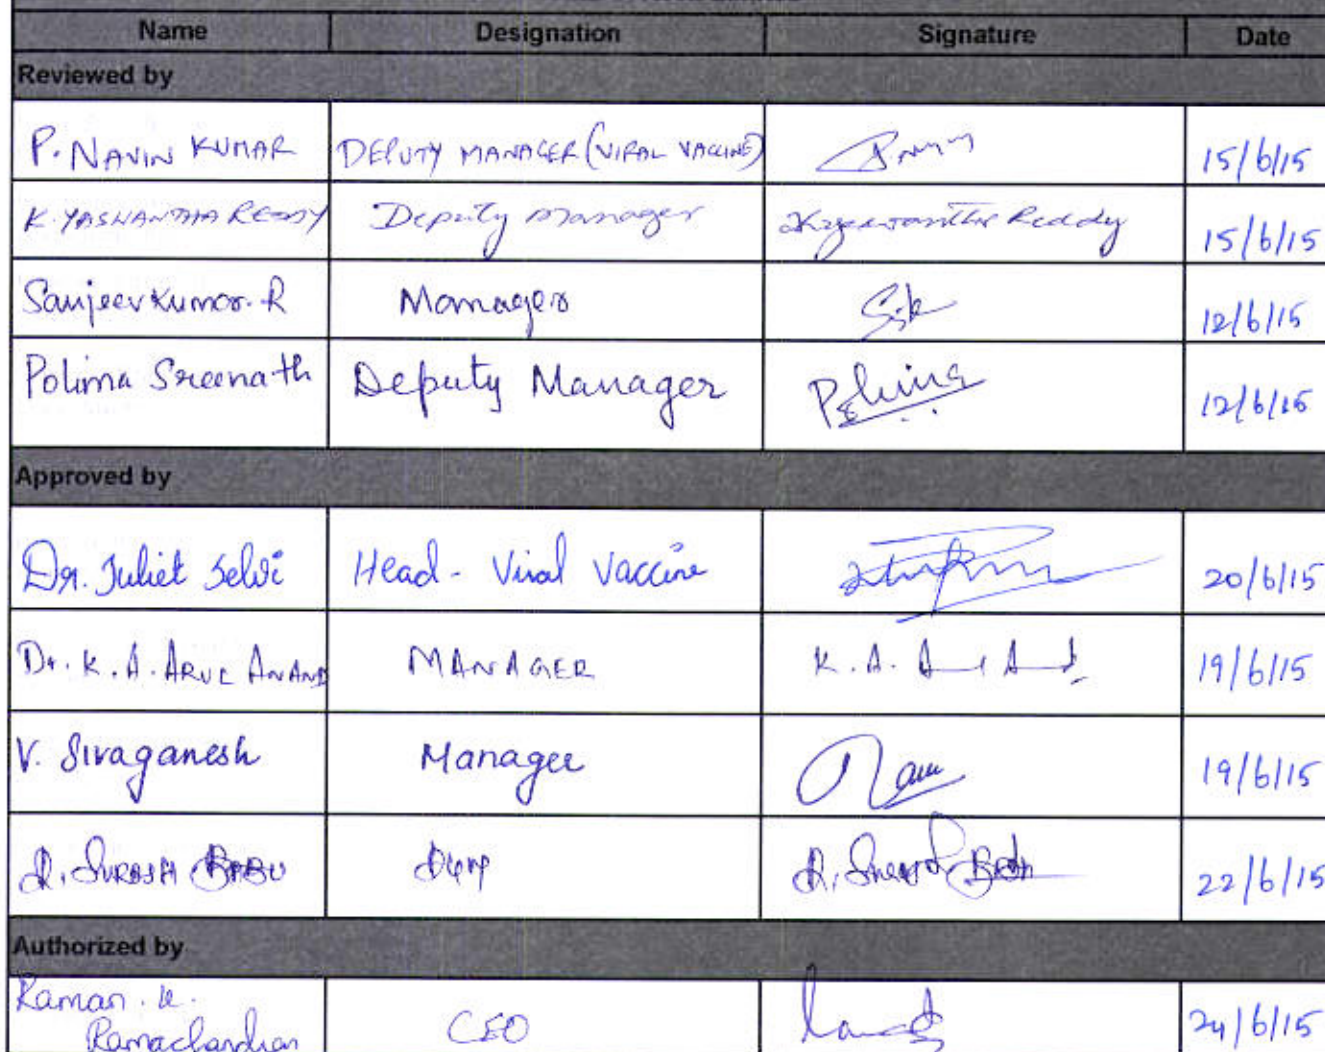 Name Designation Signature Date
Reviewed by
P. NAVIN KUMAR DEPUTY MANAGER (VIRAL VACCINE) 15/6/15
K. YASHWANTHA REDDY Deputy Manager Reddy 15/6/15
Sanjeev Kumar. R Manager 12/6/15
Polima Sreenath Deputy Manager Polima 12/6/15
Approved by
Dr. Juliet Selvi Head - Viral Vaccine 20/6/15
Dr. K. A. ARUL ANAND MANAGER K. A. 19/6/15
V. Sivaganesh Manager 19/6/15
R. SURESH BABU 22/6/15
Authorized by
Raman. 24/6/15
Ramachandran CEO